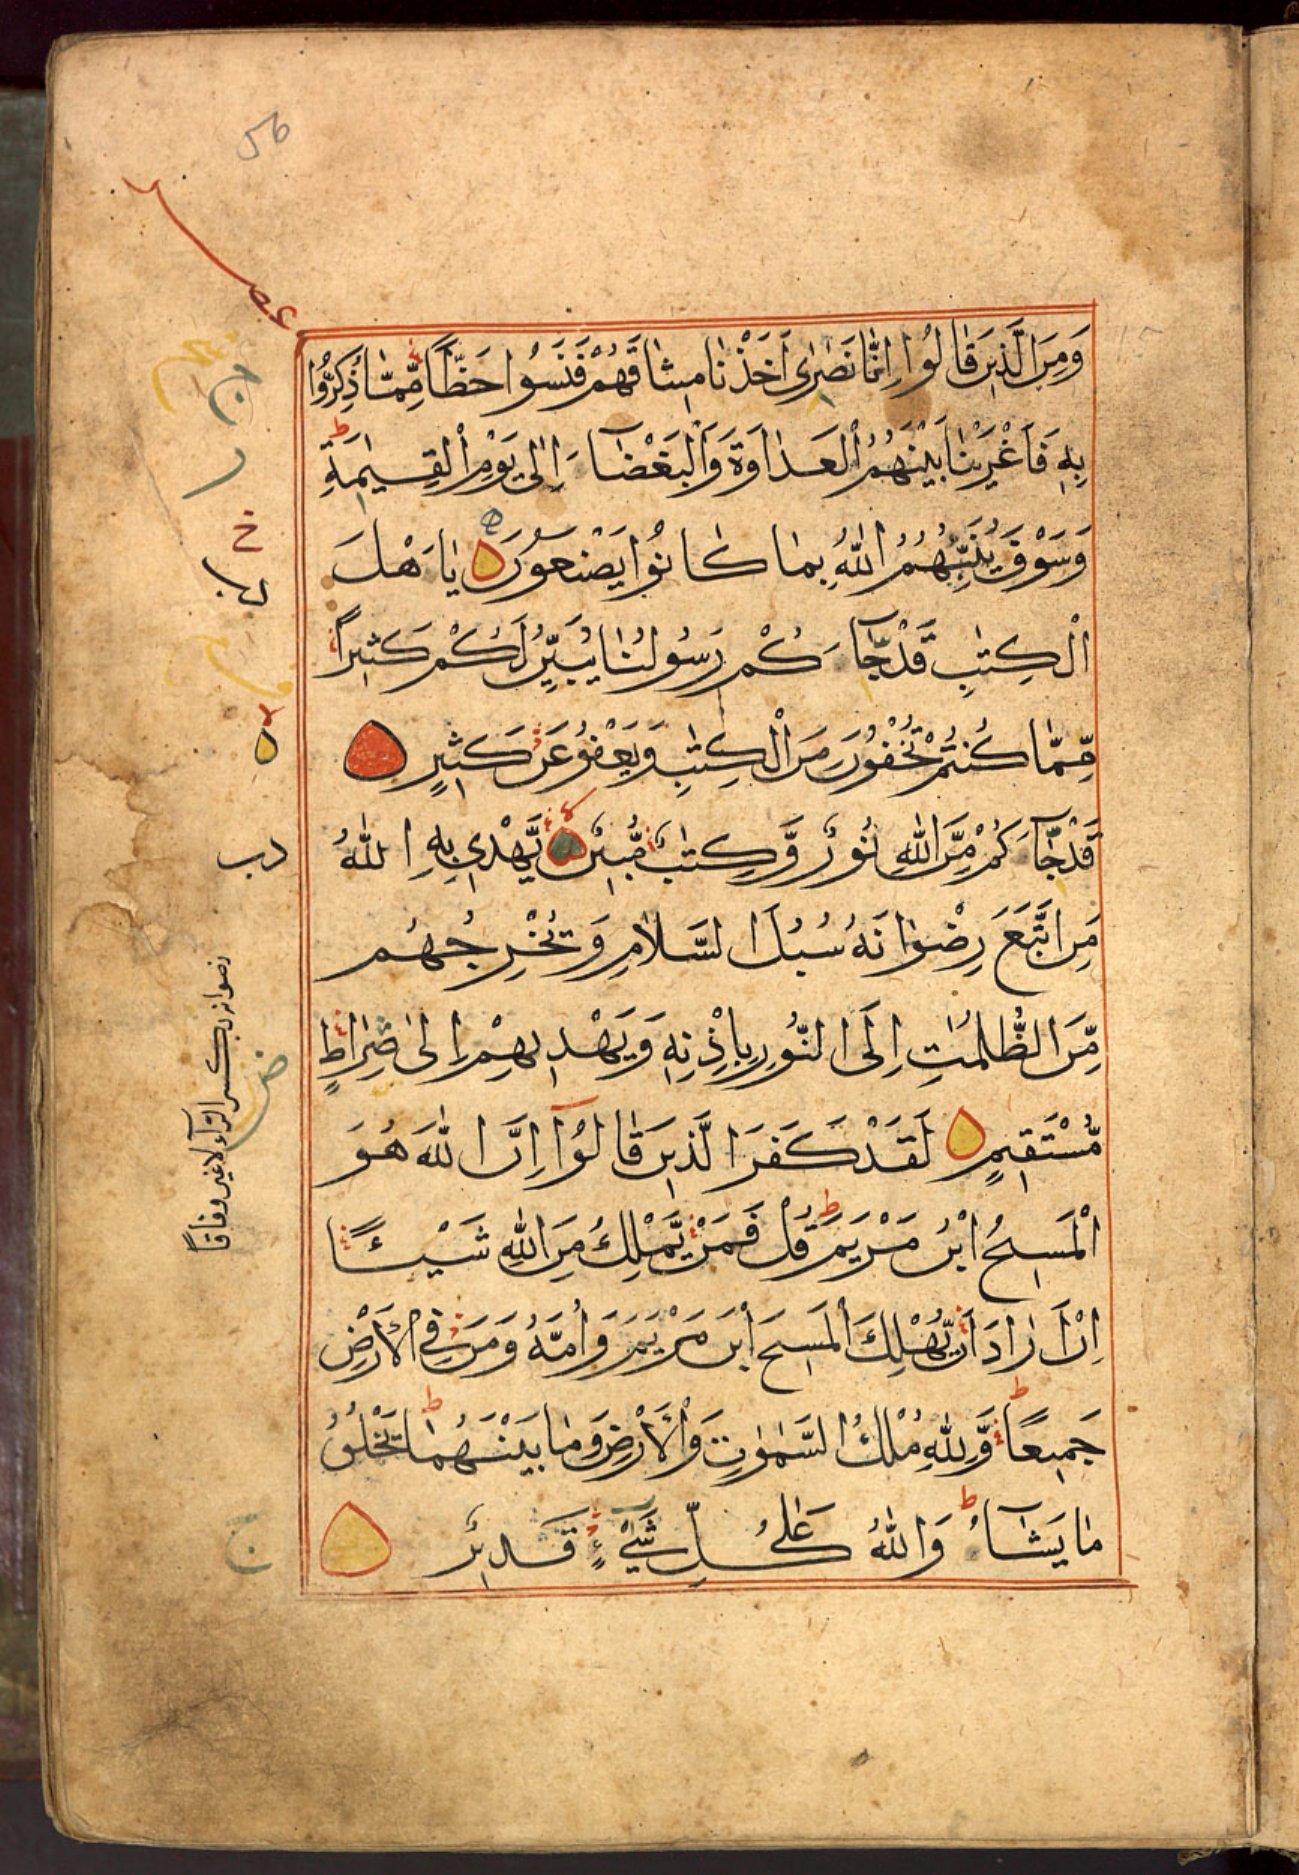 56
عشر
وَمِنَ الَّذِينَ قَالُوا إِنَّا نَصٰرٰى أَخَذْنَا مِيثَاقَهُمْ فَنَسُوا حَظًّا مِّمَّا ذُكِّرُوا
بِهِ فَأَغْرَيْنَا بَيْنَهُمُ الْعَدَاوَةَ وَالْبَغْضَآءَ إِلٰى يَوْمِ الْقِيٰمَةِ
وَسَوْفَ يُنَبِّئُهُمُ اللّٰهُ بِمَا كَانُوا يَصْنَعُونَ يَا أَهْلَ
الْكِتٰبِ قَدْ جَآءَكُمْ رَسُولُنَا يُبَيِّنُ لَكُمْ كَثِيرًا
مِّمَّا كُنْتُمْ تُخْفُونَ مِنَ الْكِتٰبِ وَيَعْفُو عَنْ كَثِيرٍ
قَدْ جَآءَكُمْ مِّنَ اللّٰهِ نُورٌ وَّكِتٰبٌ مُّبِينٌ يَّهْدِي بِهِ اللّٰهُ
مَنِ اتَّبَعَ رِضْوَانَهُ سُبُلَ السَّلَامِ وَيُخْرِجُهُم
مِّنَ الظُّلُمٰتِ إِلَى النُّورِ بِإِذْنِهِ وَيَهْدِيهِمْ إِلٰى صِرَاطٍ
مُّسْتَقِيمٍ لَقَدْ كَفَرَ الَّذِينَ قَالُوٓا إِنَّ اللّٰهَ هُوَ
الْمَسِيحُ ابْنُ مَرْيَمَ قُلْ فَمَنْ يَّمْلِكُ مِنَ اللّٰهِ شَيْئًا
إِنْ أَرَادَ أَنْ يُّهْلِكَ الْمَسِيحَ ابْنَ مَرْيَمَ وَأُمَّهُ وَمَنْ فِي الْأَرْضِ
جَمِيعًا وَّلِلّٰهِ مُلْكُ السَّمٰوٰتِ وَالْأَرْضِ وَمَا بَيْنَهُمَا يَخْلُقُ
مَا يَشَآءُ وَاللّٰهُ عَلٰى كُلِّ شَيْءٍ قَدِيرٌ
رضوانه بكسر الرآء لا غير وفاقًا